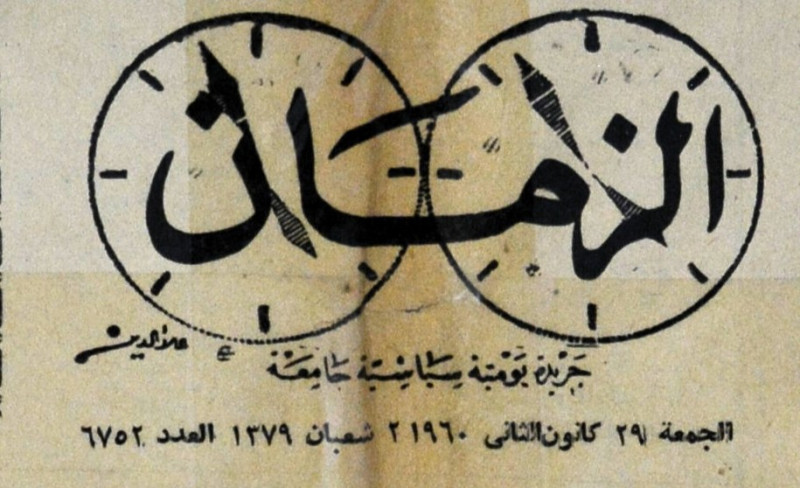 الزمان
علاء الدين
جريدة يومية سياسية جامعة
الجمعة ٢٩ كانون الثاني ١٩٦٠ ٢ شعبان ١٣٧٩ العدد ٦٧٥٢